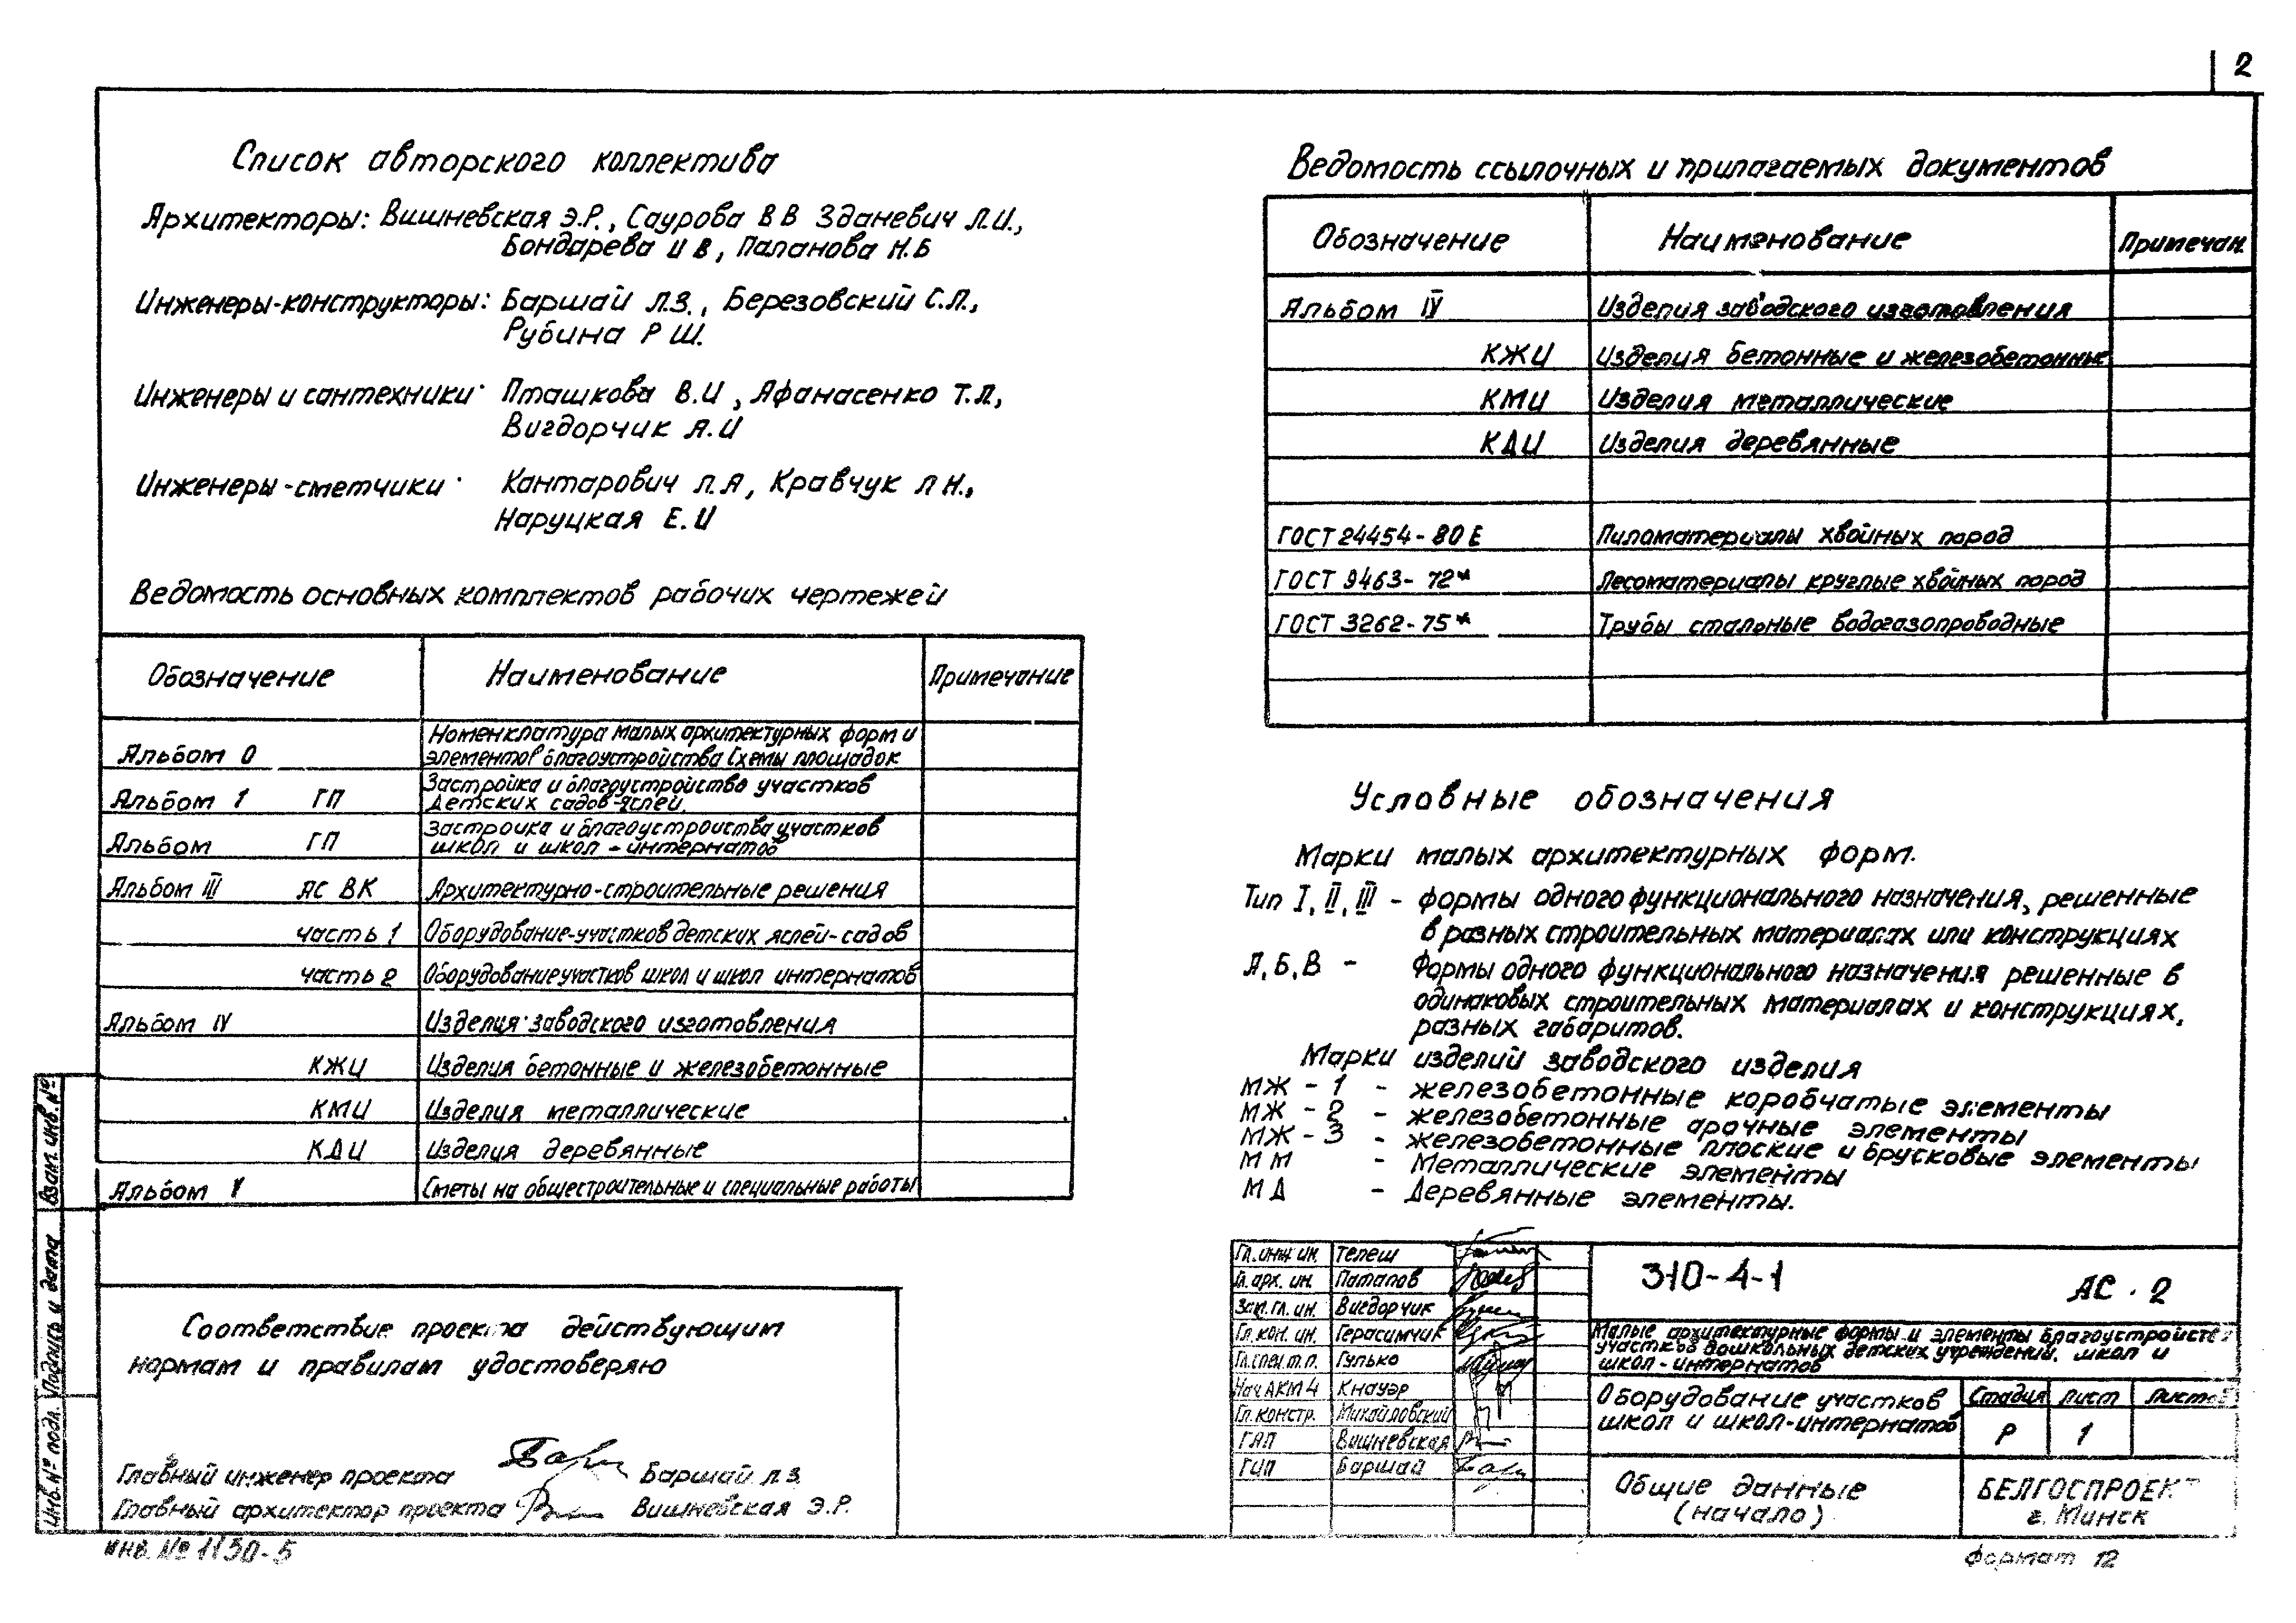 2
Список авторского коллектива
Архитекторы: Вишневская Э.Р., Саурова В В Зданевич Л.И.,
Бондарева И В, Папанова Н.Б
Инженеры-конструкторы: Баршай Л.З., Березовский С.Л.,
Рубина Р Ш.
Инженеры и сантехники Пташкова В.И, Афанасенко Т.Л.,
Вигдорчик А.И
Инженеры-сметчики Кантарович Л.А, Кравчук Л Н.,
Наруцкая Е.И
Ведомость основных комплектов рабочих чертежей
Обозначение Наименование Примечание
Альбом 0 Номенклатура малых архитектурных форм и
элементов благоустройства Схемы площадок
Альбом 1 ГП Застройка и благоустройство участков
детских садов-яслей.
Альбом ГП Застройка и благоустройства участков
школ и школ-интернатов
Альбом III АС ВК Архитектурно-строительные решения
часть 1 Оборудование-участков детских яслей-садов
часть 2 Оборудование участков школ и школ интернатов
Альбом IV Изделия заводского изготовления
КЖИ Изделия бетонные и железобетонные
КМИ Изделия металлические
КДИ Изделия деревянные
Альбом V Сметы на общестроительные и специальные работы
Соответствие проекта действующим
нормам и правилам удостоверяю
Главный инженер проекта Баршай Л.З.
Главный архитектор проекта Вишневская Э.Р.
Взам. инв. №
Подпись и дата
Инв. № подл.
инв. № 1130-5
Ведомость ссылочных и прилагаемых документов
Обозначение Наименование Примечан.
Альбом IV Изделия заводского изготовления
КЖИ Изделия бетонные и железобетонные
КМИ Изделия металлические
КДИ Изделия деревянные
ГОСТ 24454-80 Е Пиломатериалы хвойных пород
ГОСТ 9463-72* Лесоматериалы круглые хвойных пород
ГОСТ 3262-75* Трубы стальные водогазопроводные
Условные обозначения
Марки малых архитектурных форм.
Тип I, II, III - формы одного функционального назначения, решенные
в разных строительных материалах или конструкциях
А, Б, В - Формы одного функционального назначения решенные в
одинаковых строительных материалах и конструкциях,
разных габаритов.
Марки изделий заводского изделия
МЖ - 1 - железобетонные коробчатые элементы
МЖ - 2 - железобетонные арочные элементы
МЖ - 3 - железобетонные плоские и брусковые элементы
ММ - Металлические элементы
МД - Деревянные элементы.
Гл. инж ин. Телеш
Гл. арх. ин. Патапов
Зам. гл. ин. Вигдорчик
Гл. кон. ин. Герасимчик
Гл. спец. т.п. Гулько
Нач АКМ 4 Кнауэр
Гл. констр. Михайловский
ГАП Вишневская
ГИП Баршай
310-4-1 АС . 2
Малые архитектурные формы и элементы благоустройств
участков дошкольных детских учреждений, школ и
школ-интернатов
Оборудование участков
школ и школ-интернатов
Стадия Лист Листов
Р 1
Общие данные
(начало)
БЕЛГОСПРОЕКТ
г. Минск
Формат 12